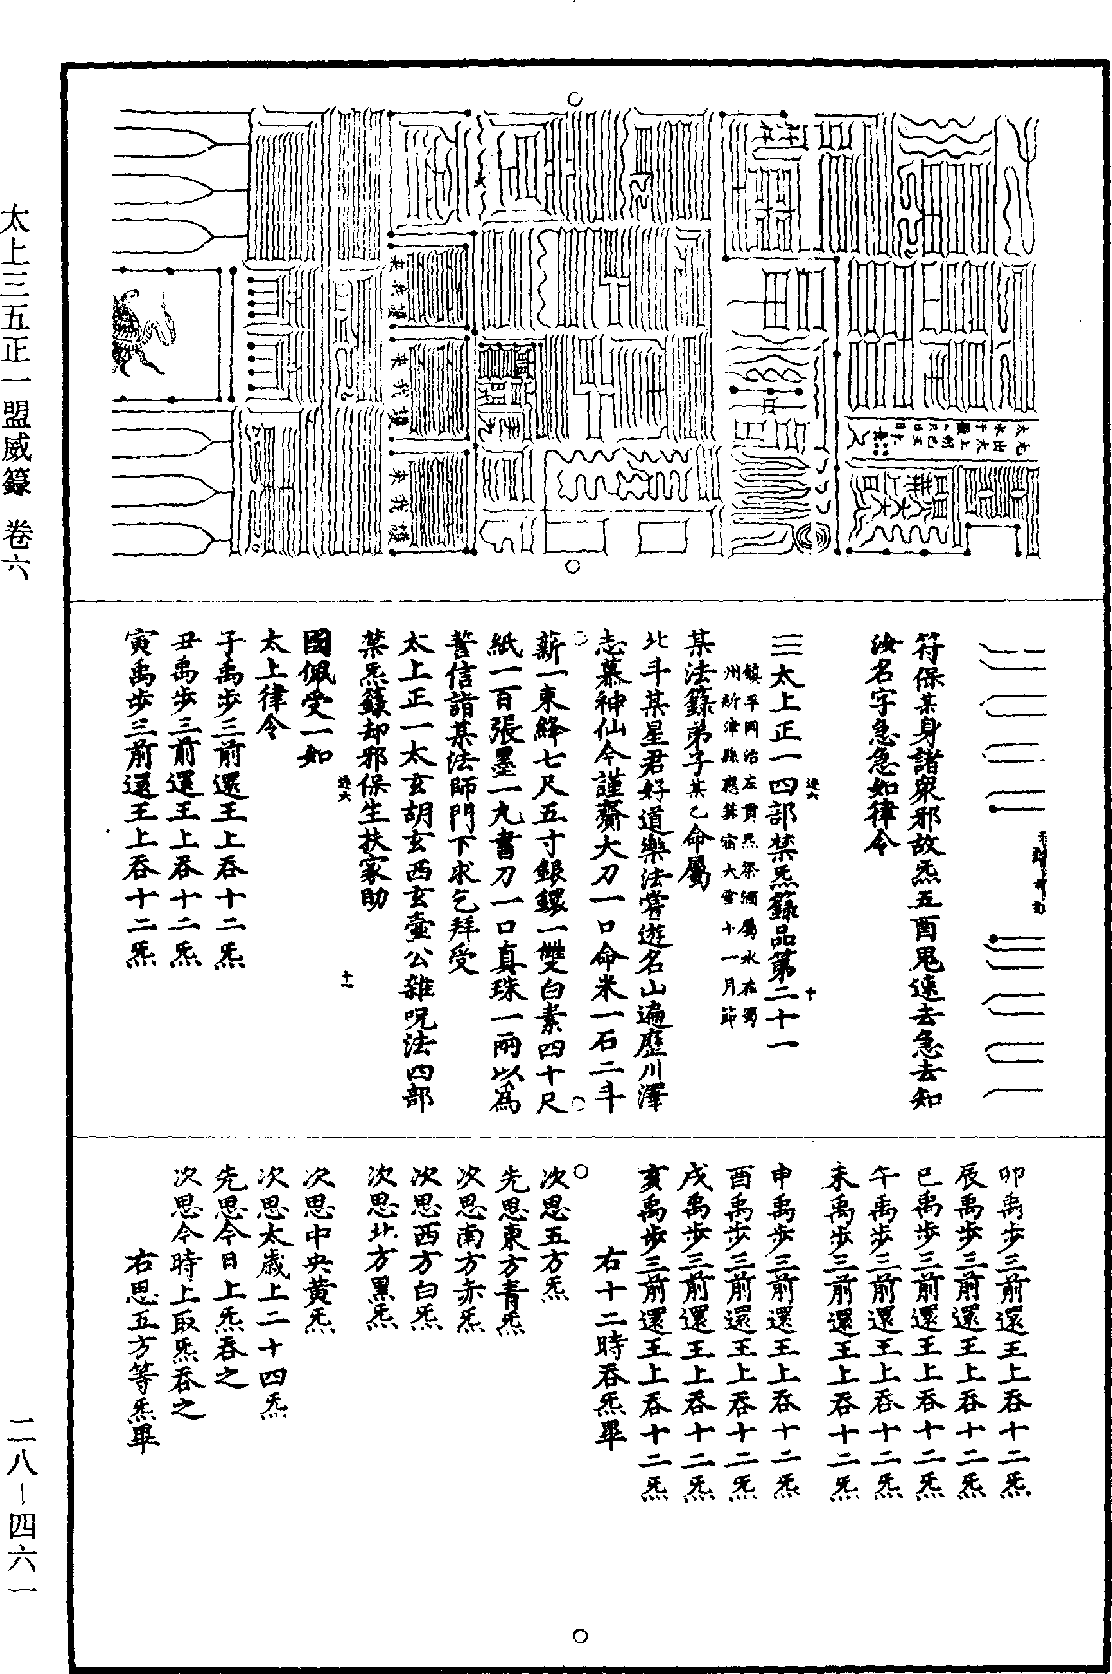 太上三五正一盟威籙 卷六
來我護
來我護
來我護
符保某身諸衆邪故炁五酉鬼速去急去知
汝名字急急如律令
三太上正一四部禁炁籙品第二十一
鎮平岡治左貢炁祭酒屬水在蜀
州新津縣應箕宿大雪十一月節
某法籙弟子某乙命屬
北斗某星君好道樂法嘗遊名山遍歷川澤
志慕神仙今謹齎大刀一口命米一石二斗
薪一束絳七尺五寸銀鐶一雙白素四十尺
紙一百張墨一丸書刀一口真珠一兩以爲
誓信詣某法師門下求乞拜受
太上正一太玄胡玄西玄壺公雜呪法四部
禁炁籙却邪保生扶家助
國佩受一如
太上律令
子禹步三前還王上吞十二炁
丑禹步三前還王上吞十二炁
寅禹步三前還王上吞十二炁
卯禹步三前還王上吞十二炁
辰禹步三前還王上吞十二炁
巳禹步三前還王上吞十二炁
午禹步三前還王上吞十二炁
未禹步三前還王上吞十二炁
申禹步三前還王上吞十二炁
酉禹步三前還王上吞十二炁
戌禹步三前還王上吞十二炁
亥禹步三前還王上吞十二炁
右十二時吞炁畢
次思五方炁
先思東方青炁
次思南方赤炁
次思西方白炁
次思北方黑炁
次思中央黃炁
次思太歲上二十四炁
先思今日上炁吞之
次思今時上取炁吞之
右思五方等炁畢
二八–四六一